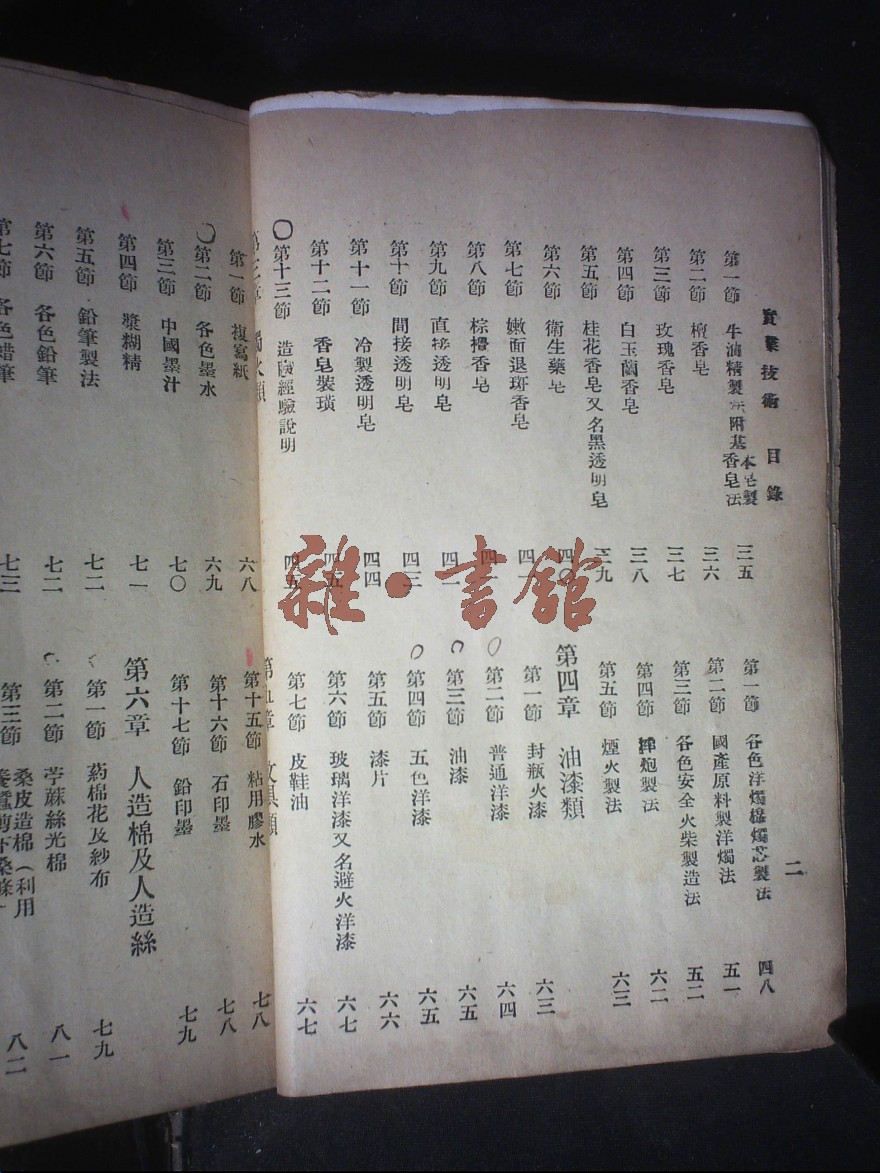 實業技術 目錄
二
第一節 牛油精製法附基本皂製香皂法 三五
第二節 檀香皂 三六
第三節 玫瑰香皂 三七
第四節 白玉蘭香皂 三八
第五節 桂花香皂又名黑透明皂 三九
第六節 衛生藥皂 四〇
第七節 嫩面退斑香皂 四一
第八節 棕櫚香皂
第九節 直接透明皂
第十節 間接透明皂 四三
第十一節 冷製透明皂 四四
第十二節 香皂裝璜 四五
第十三節 造胰經驗說明 四五
第三章 燭火類
第一節 各色洋燭棉燭芯製法 四八
第二節 國產原料製洋燭法 五一
第三節 各色安全火柴製造法 五二
第四節 炮製法 六二
第五節 煙火製法 六三
第四章 油漆類
第一節 封瓶火漆 六三
第二節 普通洋漆 六四
第三節 油漆 六五
第四節 五色洋漆 六五
第五節 漆片 六六
第六節 玻璃洋漆又名避火洋漆 六七
第七節 皮鞋油 六七
第五章 文具類
第一節 複寫紙 六八
第二節 各色墨水 六九
第三節 中國墨汁 七〇
第四節 漿糊精 七一
第五節 鉛筆製法 七二
第六節 各色鉛筆 七二
第七節 各色蜡筆 七三
第十五節 粘用膠水 七八
第十六節 石印墨 七八
第十七節 鉛印墨 七九
第六章 人造棉及人造絲
第一節 葯棉花及紗布 七九
第二節 苧蔴絲光棉 八一
第三節 桑皮造棉(利用養蠶剪下桑條 八二
雜·書館